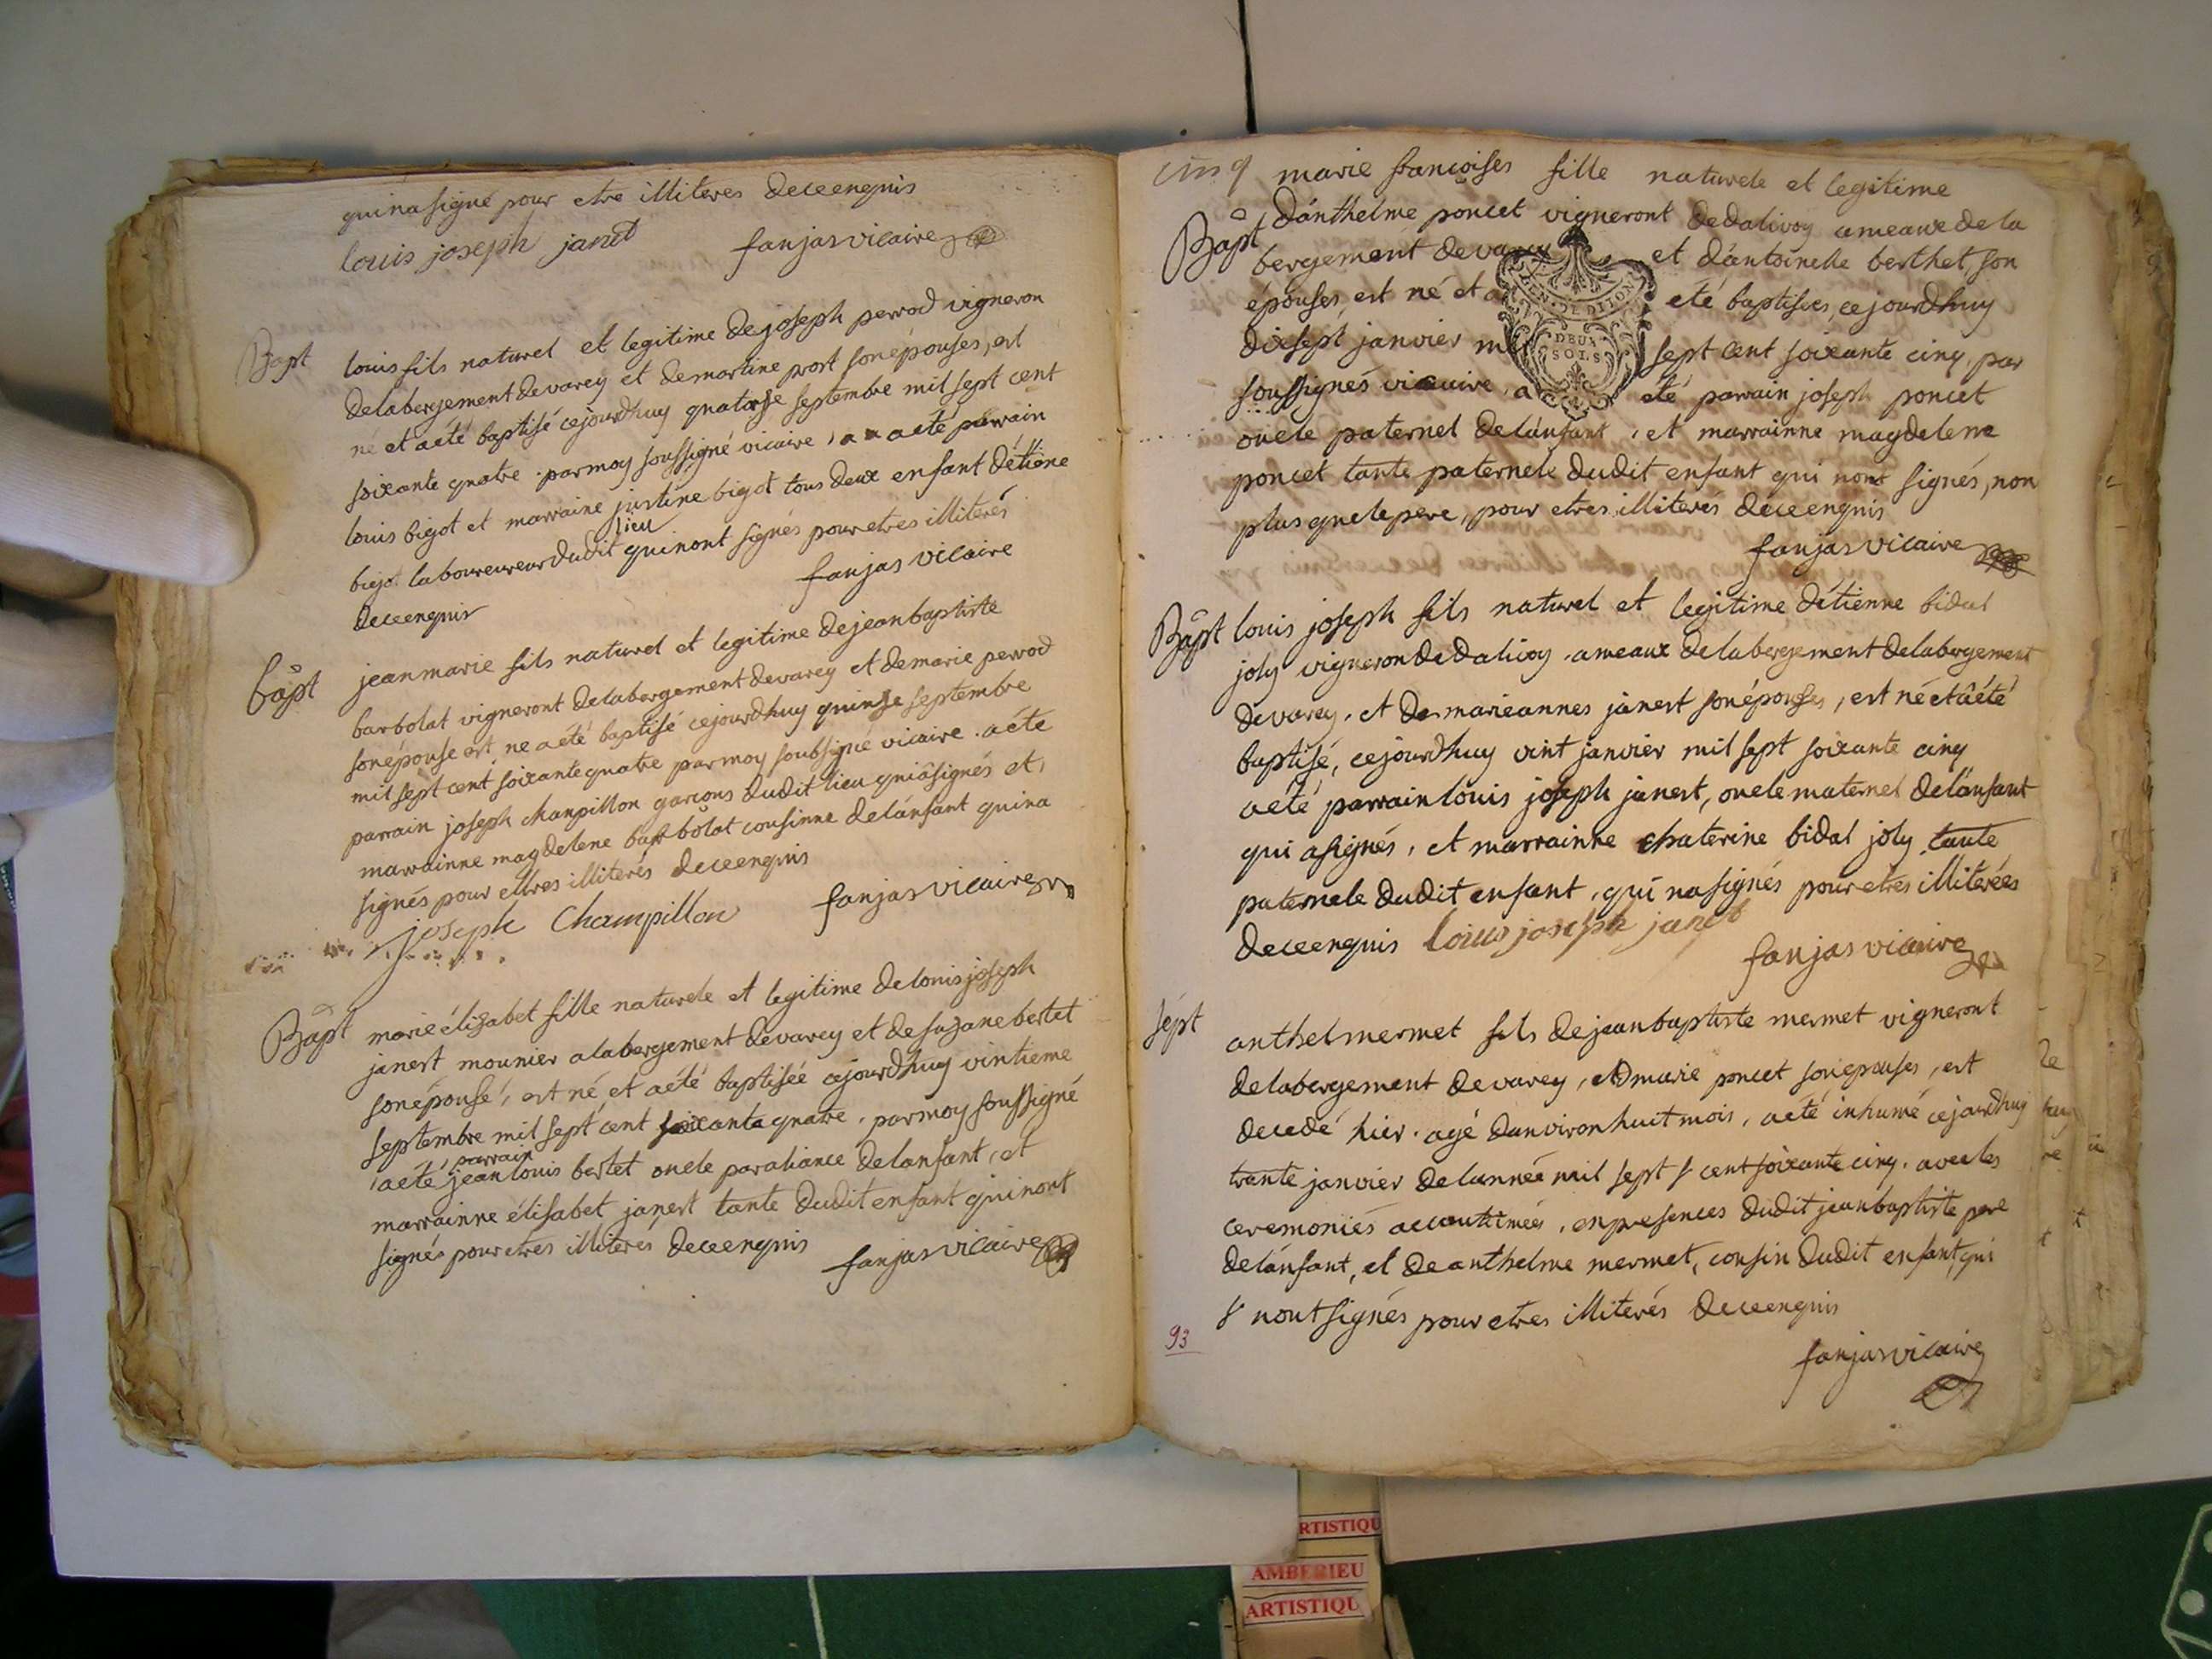 quina signé pour etre illiteres deceenquis
louis joseph janet fanjas vicaire
Bapt louis fils naturel et legitime de joseph perrod vigneron
delabergement devarey et demartine prost sonépouses, est
né et aété baptisé cejourdhuy quatorse septembre mil sept cent
soixante quatre . parmoy soussigné vicaire , a aété parrain
louis bigot et marraine justine bigot tous deux enfant détiene
bigot laboureureur dudit lieu quinont signés pour etres illiterés
deceenquis fanjas vicaire
bapt jeanmarie fils naturel et legitime dejeanbaptiste
barbolat vigneront delabergement devarey et demarie perrod
sonépouse est ne aété baptisé cejourdhuy quinse septembre
mil sept cent soixantequatre parmoy soubsigné vicaire . aéte
parrain joseph chanpillon garcons dudit lieu quiâsignés et,
marrainne magdelene barbolat cousinne delánfant quina
signés pour etres illiterés deceenquis
joseph Champillon fanjas vicaire
Bapt marie élizabet fille naturele et legitime delouis joseph
janest mounier alabergement devarey et desuzane bertet
sonépousé, est né et aété baptiséé cejourdhuy vintieme
septembre mil sept cent soixante quatre . parmoy soussigné
, aété parrain jean louis bertet oncle paraliance delanfant, et
marrainne élisabet janest tante dudit enfant quinont
signés pour etres illiterés deceenquis fanjas vicaire
cinq marie francoises fille naturele et legitime
Bapt dánthelme poncet vigneront dedalivoy ameaux de la
bergement devarey et dántoinelle berthet, son
épouses, est né et a eté baptisées, cejourdhuy
dixsept janvier mil sept cent soixante cinq, par
soussignés vicaire, a eté parrain joseph poncet
oncle paternel delánfant , et marrainne magdelene
poncet tante paternele dudit enfant qui nont signés, non
plus quelepere, pour etres illiterés deceenquis
fanjas vicaire
Bapt louis joseph fils naturel et legitime détienne bidal
joly vigneron dedalivoy . ameaux delabergement delabergement
devarey . et de marieannes janest sonépouses, est né et âété
baptisé, cejourdhuy vint janvier mil sept soixante cinq
aété parrain louis joseph janest, oncle maternel delánfant
qui asignés, et marrainne chaterine bidal joly tante
paternele dudit enfant, qui nasignés pour etres illiterées
deceenquis louis joseph janet
fanjas vicaire
sépt anthelmermet fils dejeanbaptiste mermet vigneront
delabergement devarey, et marie poncet sonepouses, est
decedé hier . agé danviron huit mois, aeté inhumé cejourdhuy
trante janvier delannéé mil sept cent soixante cinq . avecles
ceremoniés accoutumeés, enpresences dudit jeanbaptiste pere
delánfant, et deanthelme mermet, cousin dudit enfant, qui
nout signés pour etres illiterés deceenquis
93
fanjas vicaire
GEN. DE DIJON
DEUX
SOLS
ARTISTIQU
AMBERIEU
ARTISTIQU